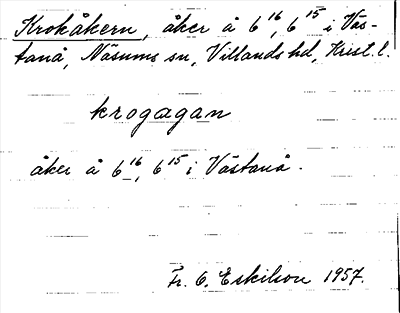 Krokåkern, åker å 6¹⁶, 6¹⁵ i Väs-
tanå, Näsums sn, Villands hd, Krist. l.
krogagan
åker å 6¹⁶, 6¹⁵ i Västanå.
Fr. O. Eskilson 1957.